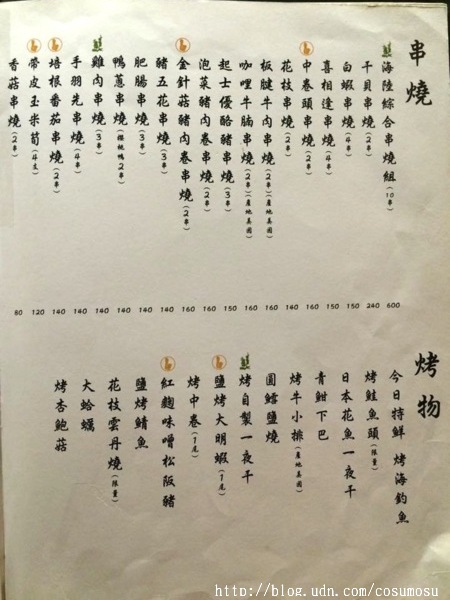 串燒
海陸綜合串燒組(10串) 600
干貝串燒(2串) 240
白蝦串燒(4串) 150
喜相逢串燒(4串) 150
中卷頭串燒(2串) 160
花枝串燒(2串) 140
板腱牛肉串燒(2串)(產地美國) 160
咖哩牛腩串燒(2串)(產地美國) 160
起士優酪豬串燒(3串) 150
泡菜豬肉卷串燒(2串) 160
金針菇豬肉卷串燒(2串) 160
豬五花串燒(3串) 140
肥腸串燒(3串) 140
鴨蔥串燒(櫻桃鴨2串) 140
雞肉串燒(3串) 140
手羽先串燒(4串) 140
培根番茄串燒(2串) 140
帶皮玉米筍(4支) 120
香菇串燒(2串) 80
烤物
今日特鮮 烤海釣魚
烤鮭魚頭(限量)
日本花魚一夜干
青魽下巴
烤牛小排(產地美國)
圓鱈鹽燒
烤自製一夜干
鹽烤大明蝦(1尾)
烤中卷(1尾)
紅麴味噌松阪豬
鹽烤鯖魚
花枝雲丹燒(限量)
大蛤蠣
烤杏鮑菇
http://blog.udn.com/cosumosu